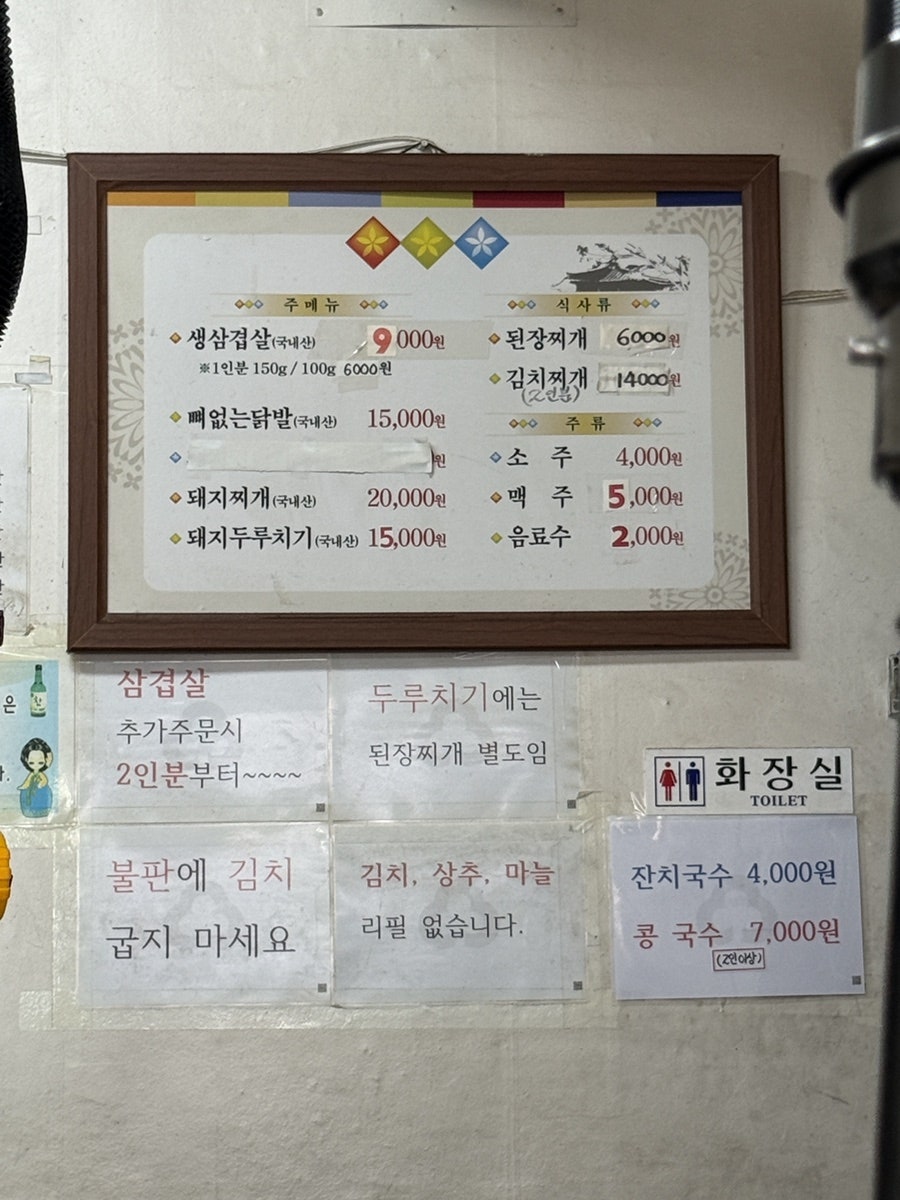 주메뉴
생삼겹살(국내산) 9000원
※1인분 150g / 100g 6000원
뼈없는닭발(국내산) 15,000원
원
돼지찌개(국내산) 20,000원
돼지두루치기(국내산) 15,000원
식사류
된장찌개 6000원
김치찌개 14000원
(2인분)
주류
소 주 4,000원
맥 주 5,000원
음료수 2,000원
은
삼겹살
추가주문시
2인분부터~~~~
두루치기에는
된장찌개 별도임
화장실
TOILET
불판에 김치
굽지 마세요
김치, 상추, 마늘
리필 없습니다.
잔치국수 4,000원
콩 국수 7,000원
(2인이상)